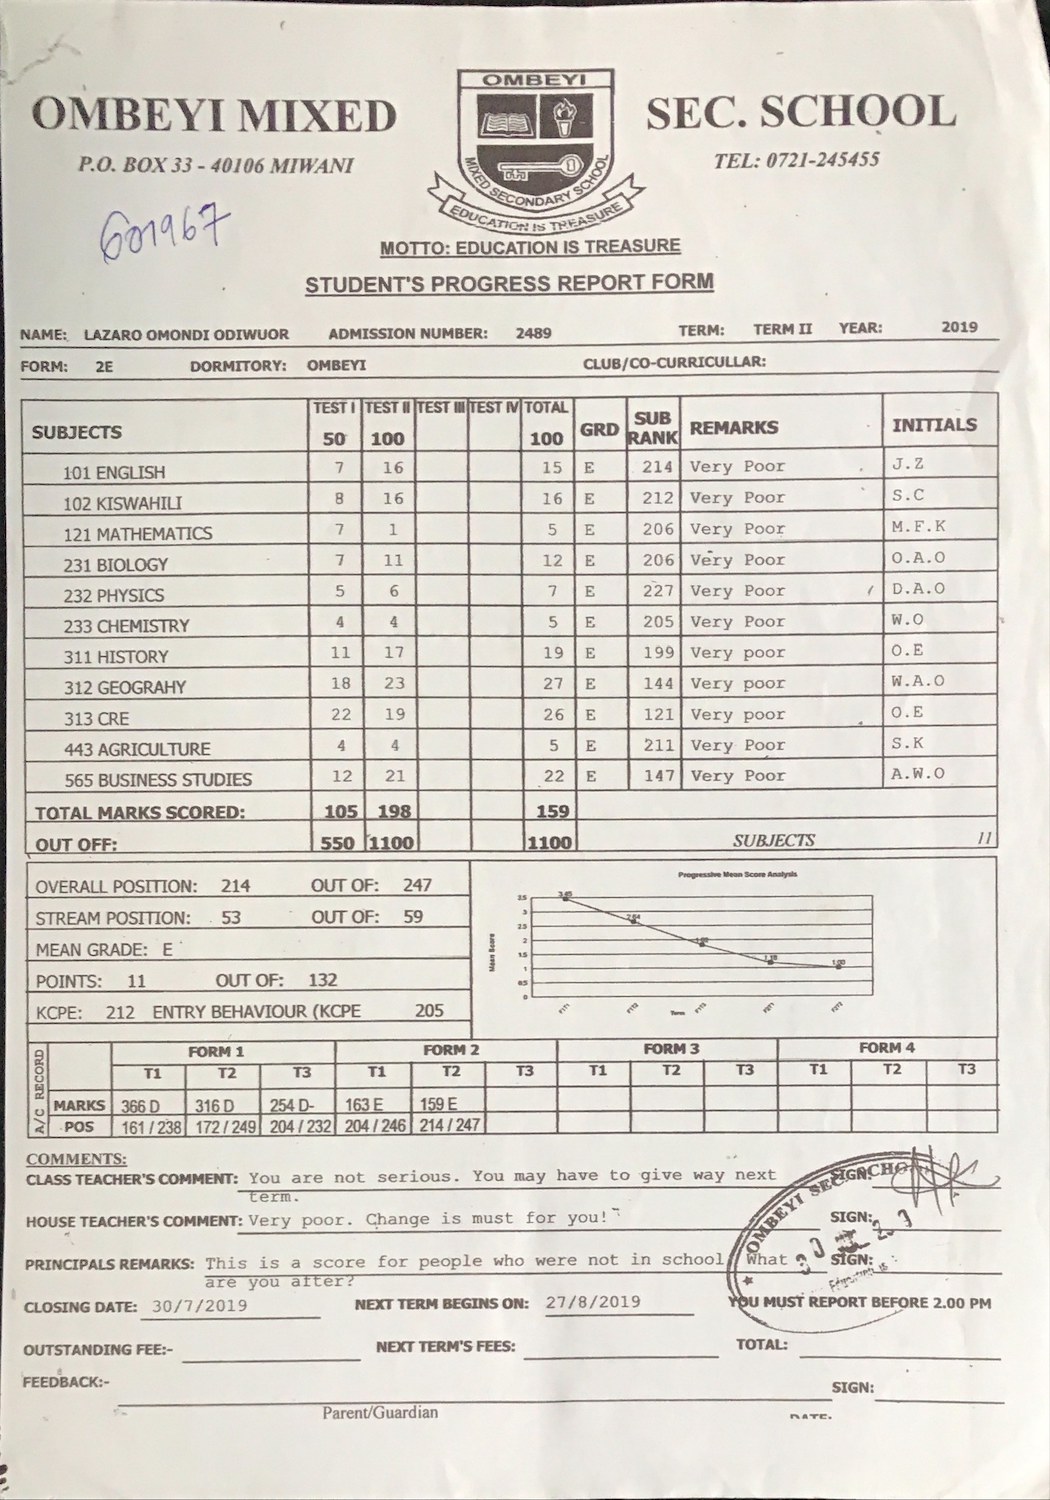 OMBEYI MIXED SEC. SCHOOL
P.O. BOX 33 - 40106 MIWANI
TEL: 0721-245455
OMBEYI
MIXED SECONDARY SCHOOL
EDUCATION IS TREASURE
601967
MOTTO: EDUCATION IS TREASURE
STUDENT'S PROGRESS REPORT FORM
NAME: LAZARO OMONDI ODIWUOR ADMISSION NUMBER: 2489 TERM: TERM II YEAR: 2019
FORM: 2E DORMITORY: OMBEYI CLUB/CO-CURRICULLAR:
SUBJECTS TEST I 50 TEST II 100 TEST III TEST IV TOTAL 100 GRD SUB RANK REMARKS INITIALS
101 ENGLISH 7 16 15 E 214 Very Poor J.Z
102 KISWAHILI 8 16 16 E 212 Very Poor S.C
121 MATHEMATICS 7 1 5 E 206 Very Poor M.F.K
231 BIOLOGY 7 11 12 E 206 Very Poor O.A.O
232 PHYSICS 5 6 7 E 227 Very Poor D.A.O
233 CHEMISTRY 4 4 5 E 205 Very Poor W.O
311 HISTORY 11 17 19 E 199 Very poor O.E
312 GEOGRAHY 18 23 27 E 144 Very poor W.A.O
313 CRE 22 19 26 E 121 Very poor O.E
443 AGRICULTURE 4 4 5 E 211 Very Poor S.K
565 BUSINESS STUDIES 12 21 22 E 147 Very Poor A.W.O
TOTAL MARKS SCORED: 105 198 159
OUT OFF: 550 1100 1100 SUBJECTS 11
OVERALL POSITION: 214 OUT OF: 247
STREAM POSITION: 53 OUT OF: 59
MEAN GRADE: E
POINTS: 11 OUT OF: 132
KCPE: 212 ENTRY BEHAVIOUR (KCPE 205
Progressive Mean Score Analysis
Mean Score
3.5
3
2.5
2
1.5
1
0.5
0
2.64
1.18
1.00
Term
A/C RECORD
FORM 1 FORM 2 FORM 3 FORM 4
T1 T2 T3 T1 T2 T3 T1 T2 T3 T1 T2 T3
MARKS 366 D 316 D 254 D- 163 E 159 E
POS 161 / 238 172 / 249 204 / 232 204 / 246 214 / 247
COMMENTS:
CLASS TEACHER'S COMMENT: You are not serious. You may have to give way next SIGN:
term.
HOUSE TEACHER'S COMMENT: Very poor. Change is must for you! SIGN:
PRINCIPALS REMARKS: This is a score for people who were not in school. What SIGN:
are you after?
OMBEYI SEC SCHO
CLOSING DATE: 30/7/2019 NEXT TERM BEGINS ON: 27/8/2019 YOU MUST REPORT BEFORE 2.00 PM
OUTSTANDING FEE:- NEXT TERM'S FEES: TOTAL:
FEEDBACK:- SIGN:
Parent/Guardian
DATE: